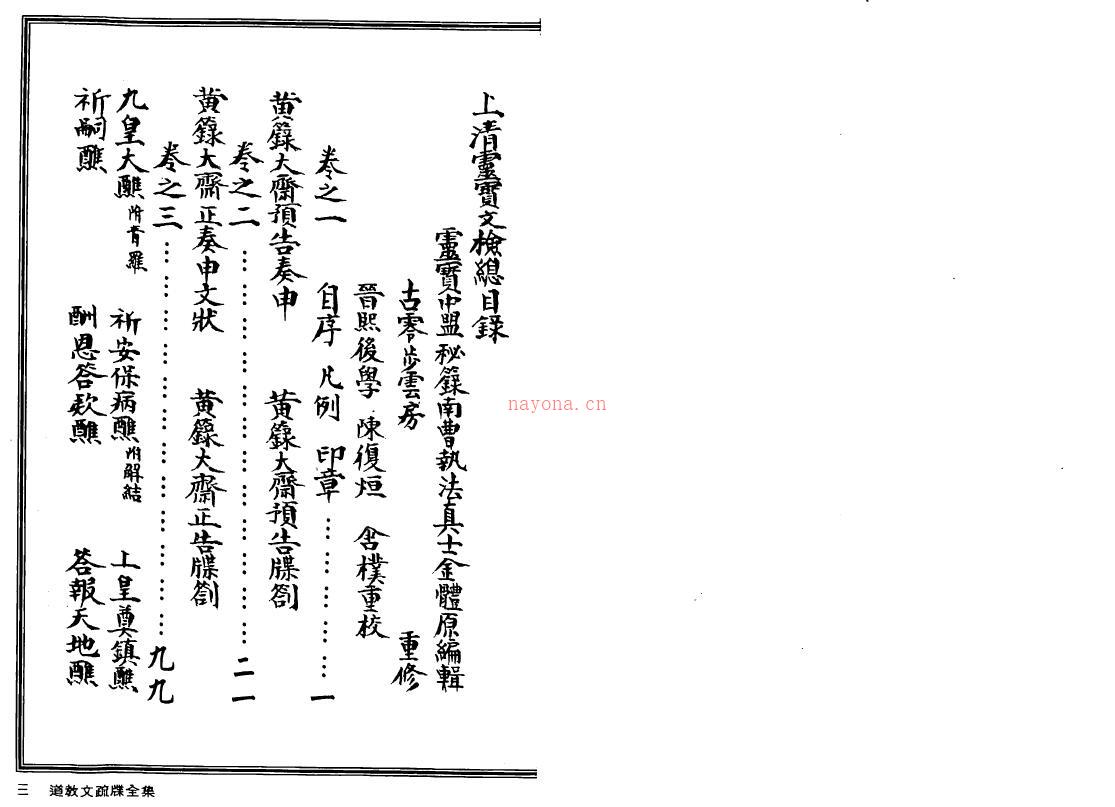 上清靈寶文檢總目錄
靈寶中盟秘籙南曹執法真士金體原編輯
古零步雲房 重修
晉熙後學 陳復烜 含樸重校
卷之一 自序 凡例 印章 一
黃籙大齋預告奏申 黃籙大齋預告牒劄
卷之二 二一
黃籙大齋正奏申文狀 黃籙大齋正告牒劄
卷之三 九九
九皇大醮附青羅 祈安保病醮附解結 上皇奠鎮醮
祈嗣醮 酬恩答欵醮 答報天地醮
三 道教文疏牒全集
nayona.cn